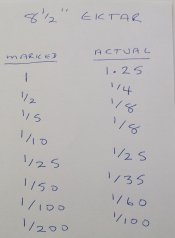 8 1/2" EKTAR
MARKED ACTUAL
1 1.25
1/2 1/4
1/5 1/8
1/10 1/8
1/25 1/25
1/50 1/35
1/100 1/60
1/200 1/100